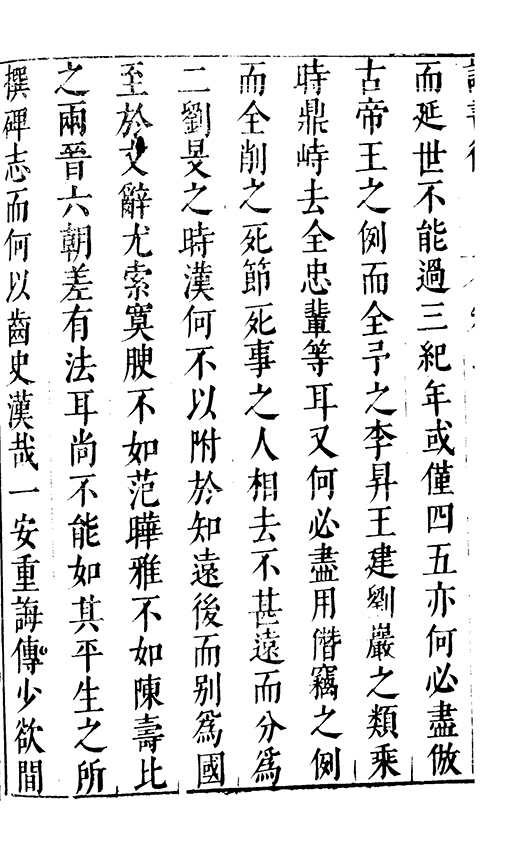 而延世不能過三紀年或僅四五亦何必盡倣
古帝王之例而全予之李昇王建劉巖之類乘
時鼎峙去全忠輩等耳又何必盡用僭竊之例
而全削之死節死事之人相去不甚遠而分爲
二劉旻之時漢何不以附於知遠後而别爲國
至於文辭尤索寞腴不如范曄雅不如陳壽比
之兩晉六朝差有法耳尚不能如其平生之所
撰碑志而何以齒史漢哉一安重誨傳少欲間